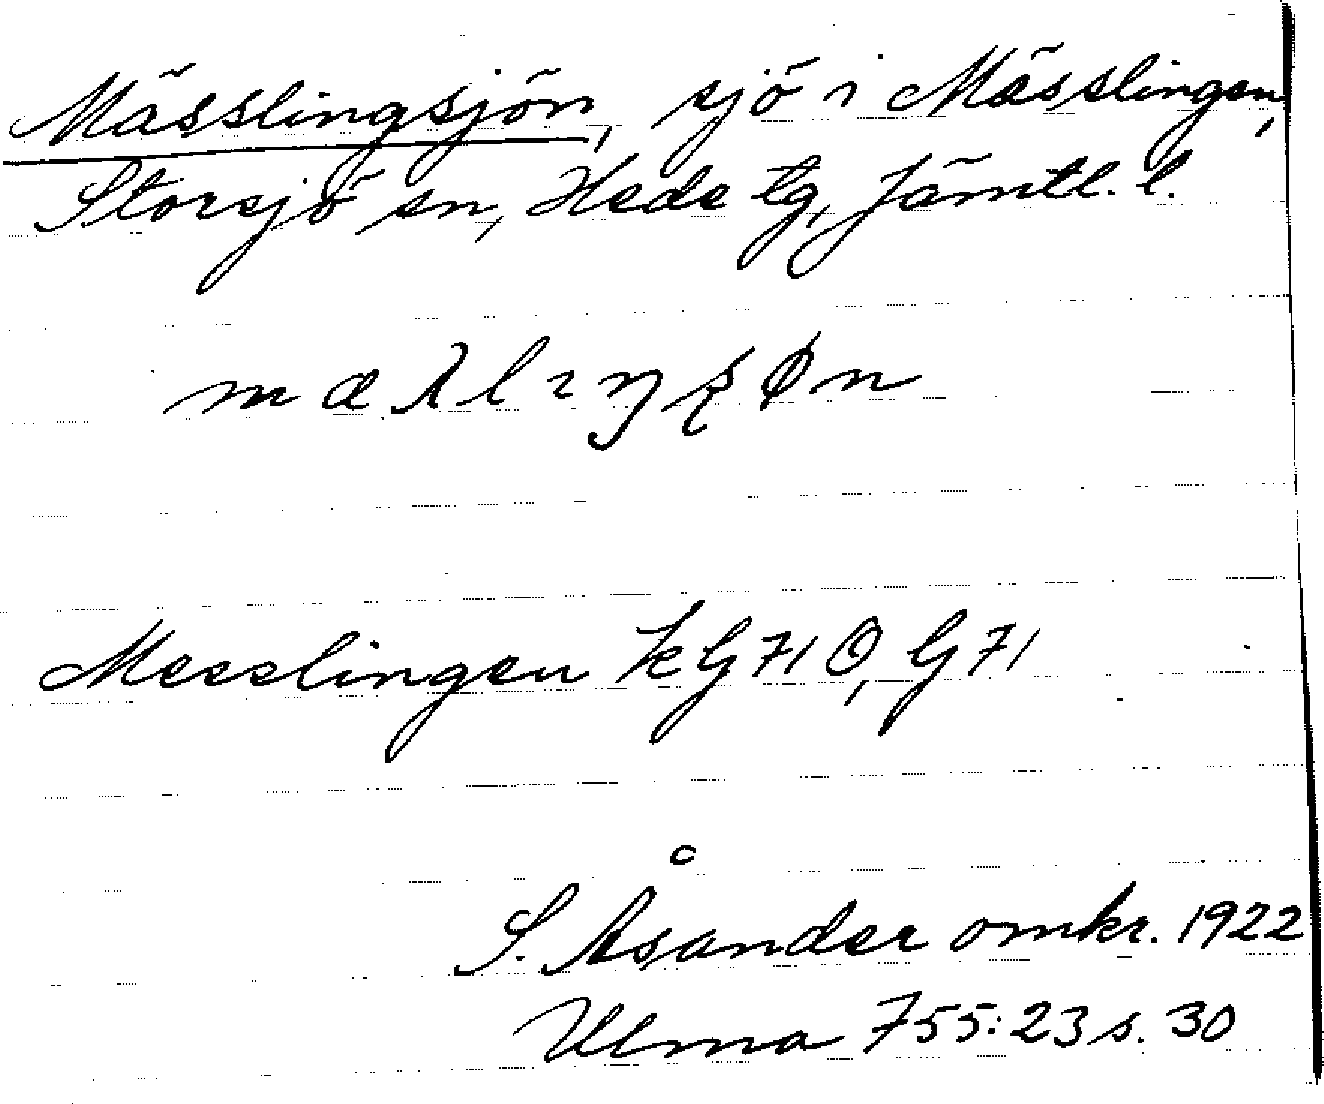 Mässlingsjön, sjö i Mässlingen,
Storsjö sn, Hede tg, Jämtl. l.
Messlingen KG71Ö, G71
S. Åsander omkr. 1922
Ulma 755:23 s. 30